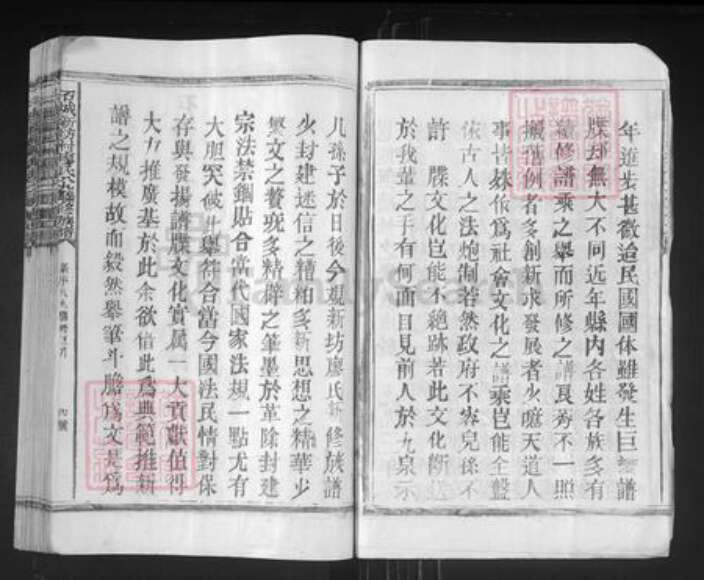 年進步甚微迨民國國体雖發生巨 譜
牒却無大不同近年縣内各姓各族多有
續修譜乘之舉而所修之譜良莠不一照
搬舊例者多創新求發展者少瞻天道人
事皆 依爲社會文化之譜乘豈能全盤
依古人之法炮制若然政府不容兒孫不
許 牒文化豈能不絶跡若此文化斷送
於我輩之手有何面目見前人於九泉示
儿孫子於日後今觀新坊廖氏新修族譜
少封建迷信之糟粕多新思想之精華少
繁文之贅琓多精辟之筆墨於革除封建
宗法禁錮貼合當代國家法規一點尤有
大胆突破此舉符合當今國法民情對保
存與發揚譜牒文化實属一大貢獻值得
大力推廣基於此余欲借此爲典範推新
譜之規模故而毅然舉筆斗膽爲文是爲
四號
FamilySearch